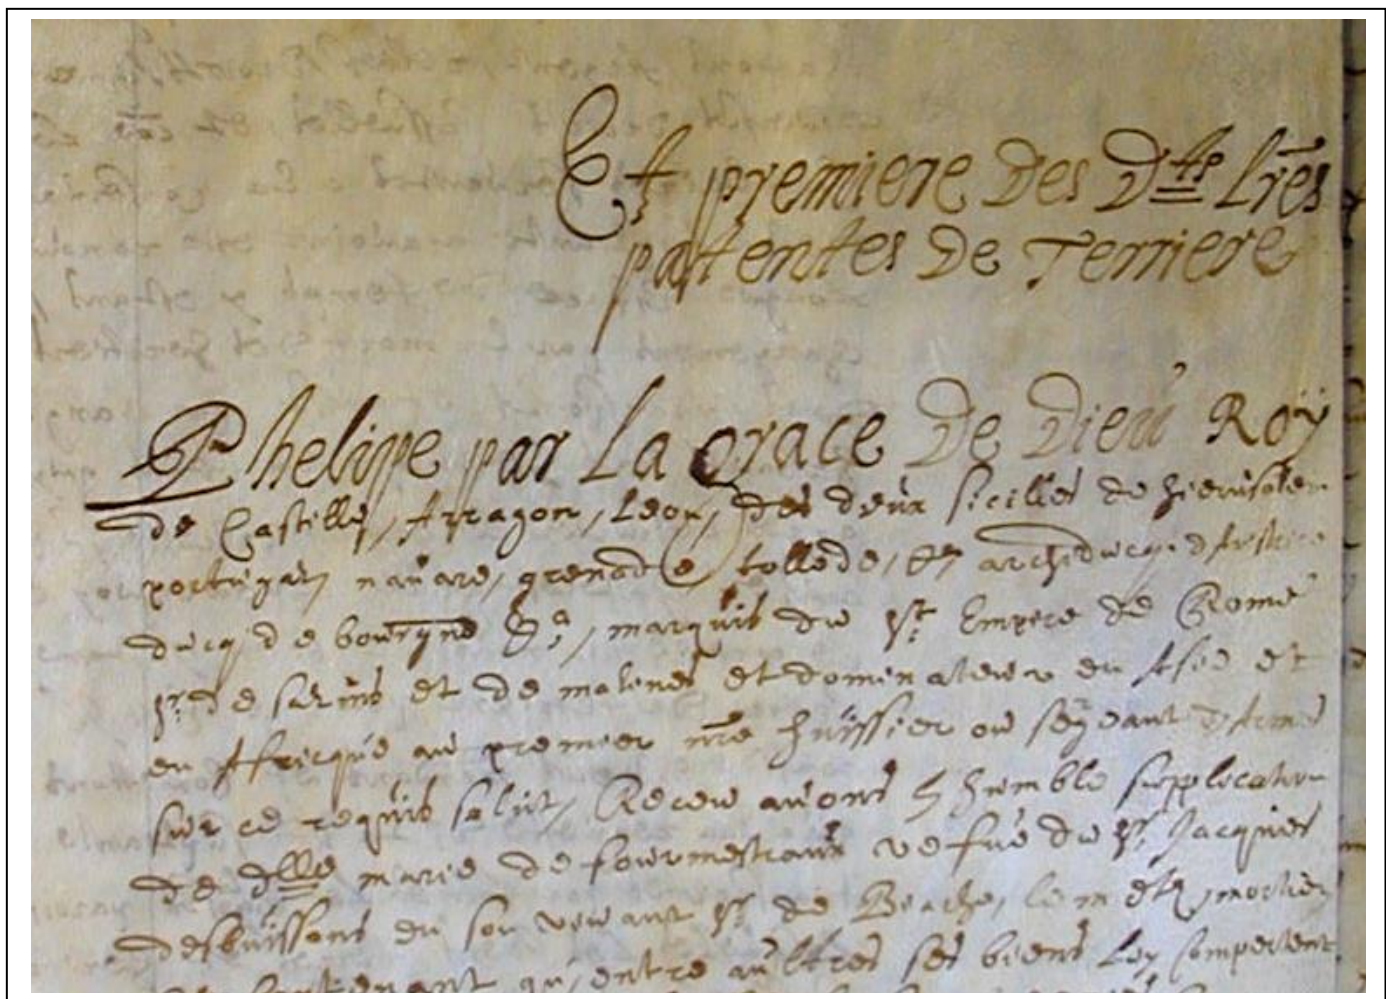 Et premiere des dtes lres
patentes de Terriere
Phelippe par la grace de dieu Roÿ
de Castille, Arragon, Leon, des deux sicilles de hierusalem
portugal, navare, grenade, tollede, archiducq d'Austrice
ducq de bourgne marquis du st Empire de Rome
sr de salins et de malines et dominateur en Asie et
en Affricque au premier nre huissier ou sergeant d'Armes
sur ce requis salut, Receu avons humble supplication
de dlle marie de fourmestraux vefue du sr Jacques
desbuissons en son vivant sr de
contenant qu'entre aultres ses biens luy competent